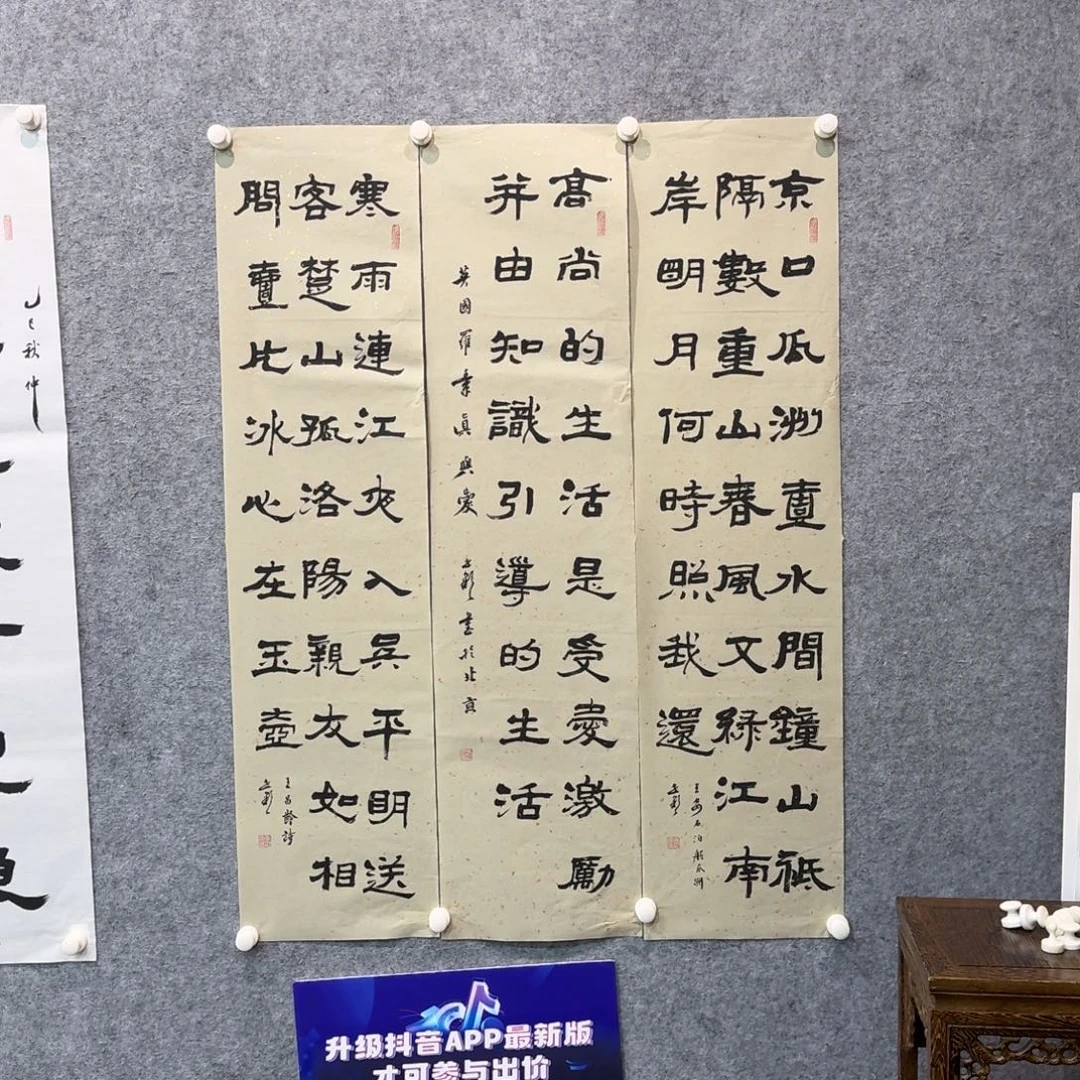 京口瓜洲壹水間鐘山祗
隔數重山春風又綠江南
岸明月何時照我還
王安石泊船瓜洲
高尚的生活是受愛激勵
并由知識引導的生活
英國羅素真與愛
書於北京
寒雨連江夜入吳平明送
客楚山孤洛陽親友如相
問壹片冰心在玉壺
王昌齡詩
乙巳秋仲
升级抖音APP最新版
才可参与出价